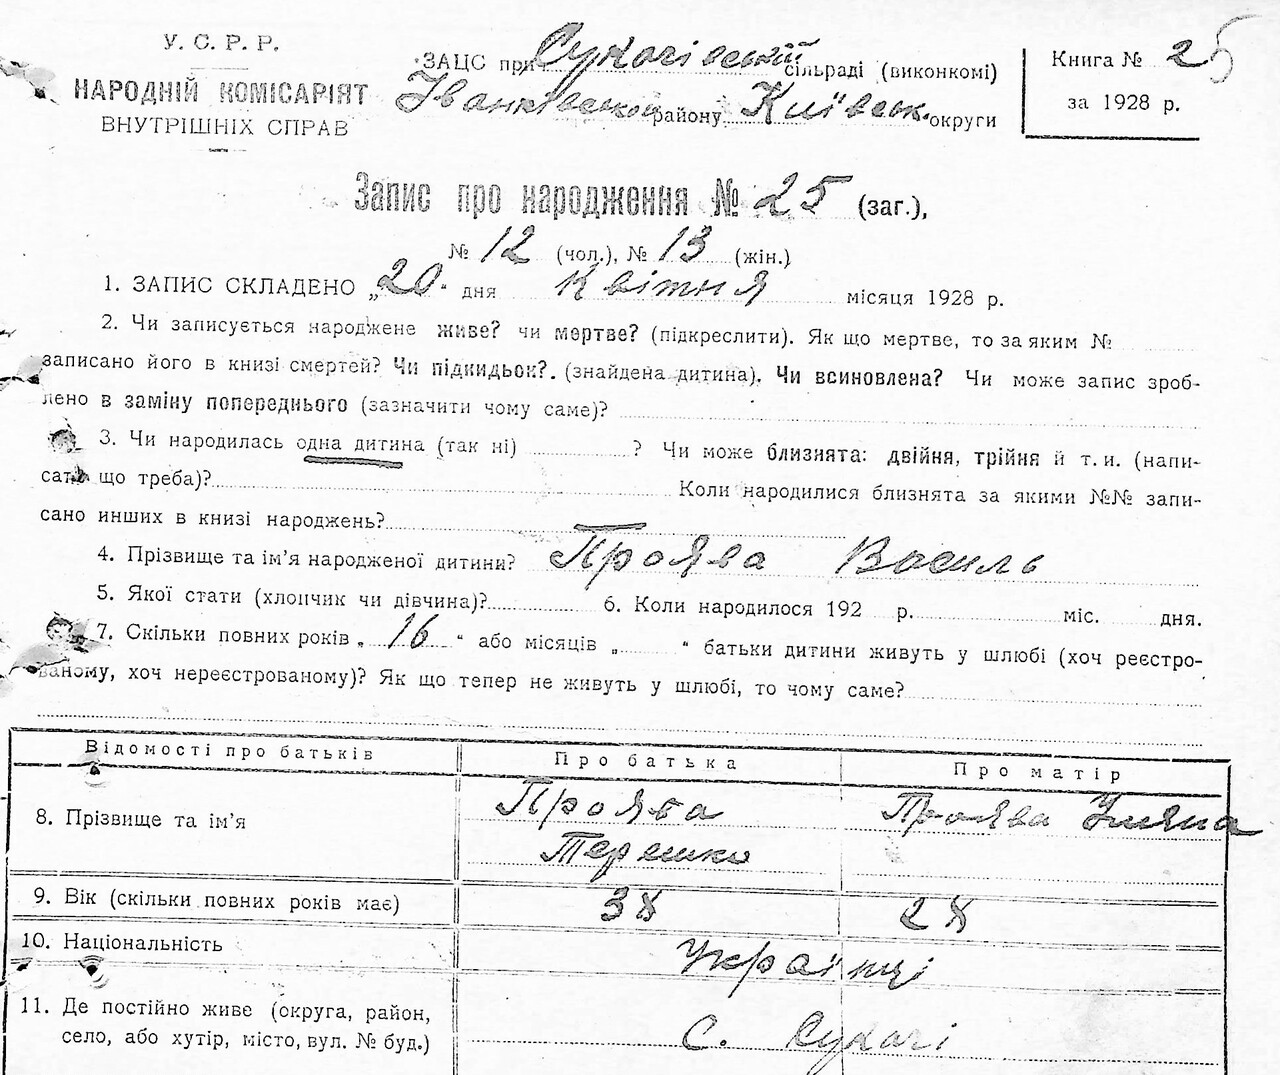 У. С. Р. Р.
НАРОДНІЙ КОМІСАРІЯТ
ВНУТРІШНІХ СПРАВ
ЗАЦС при Сукачівській сільраді (виконкомі)
Іванківського району Київськ. округи
Книга № 25
за 1928 р.
Запис про народження № 25 (заг.),
№ 12 (чол.), № 13 (жін.)
1. ЗАПИС СКЛАДЕНО „20" дня Квітня місяця 1928 р.
2. Чи записується народжене живе? чи мертве? (підкреслити). Як що мертве, то за яким №
записано його в книзі смертей? Чи підкидьок?. (знайдена дитина). Чи всиновлена? Чи може запис зроб-
лено в заміну попереднього (зазначити чому саме)?
3. Чи народилась одна дитина (так ні) ? Чи може близнята: двійня, трійня й т. и. (напи-
сати що треба)? Коли народилися близнята за якими №№ запи-
сано инших в книзі народжень?
4. Прізвище та ім'я народженої дитини? Проява Василь
5. Якої стати (хлопчик чи дівчина)? 6. Коли народилося 192 р. міс. дня.
7. Скільки повних років „ 16 " або місяців „ " батьки дитини живуть у шлюбі (хоч реєстро-
ваному, хоч нереєстрованому)? Як що тепер не живуть у шлюбі, то чому саме?
Відомості про батьків Про батька Про матір
8. Прізвище та ім'я Проява Терешко Проява Уляна
9. Вік (скільки повних років має) 38 28
10. Національність Українці
11. Де постійно живе (округа, район,
село, або хутір, місто, вул. № буд.) С. Сукачі